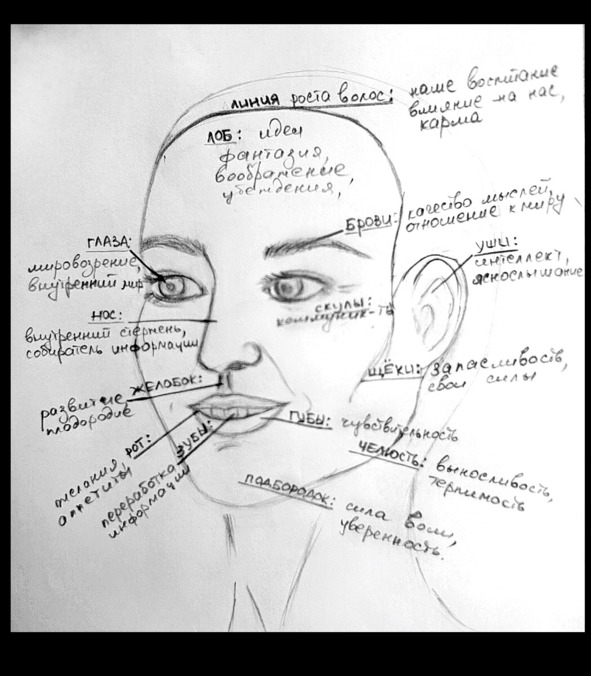 ЛИНИЯ РОСТА ВОЛОС: наше воспитание
влияние на нас,
карма
ЛОБ: идеи
фантазия,
воображение,
убеждения,
БРОВИ: качество мыслей,
отношение к миру
ГЛАЗА:
мировозрение,
внутренний мир
УШИ:
интеллект,
яснослышание
НОС:
внутренний стержень,
собиратель информации
СКУЛЫ:
коммуник-ть
ЩЁКИ: запасливость,
свои силы
ЖЕЛОБОК:
развитие
плодородие
ГУБЫ: чувствительность
РОТ:
желания,
аппетиты
ЗУБЫ:
переработка
информации
ЧЕЛЮСТЬ: выносливость,
терпимость
ПОДБОРОДОК: сила воли,
уверенность.